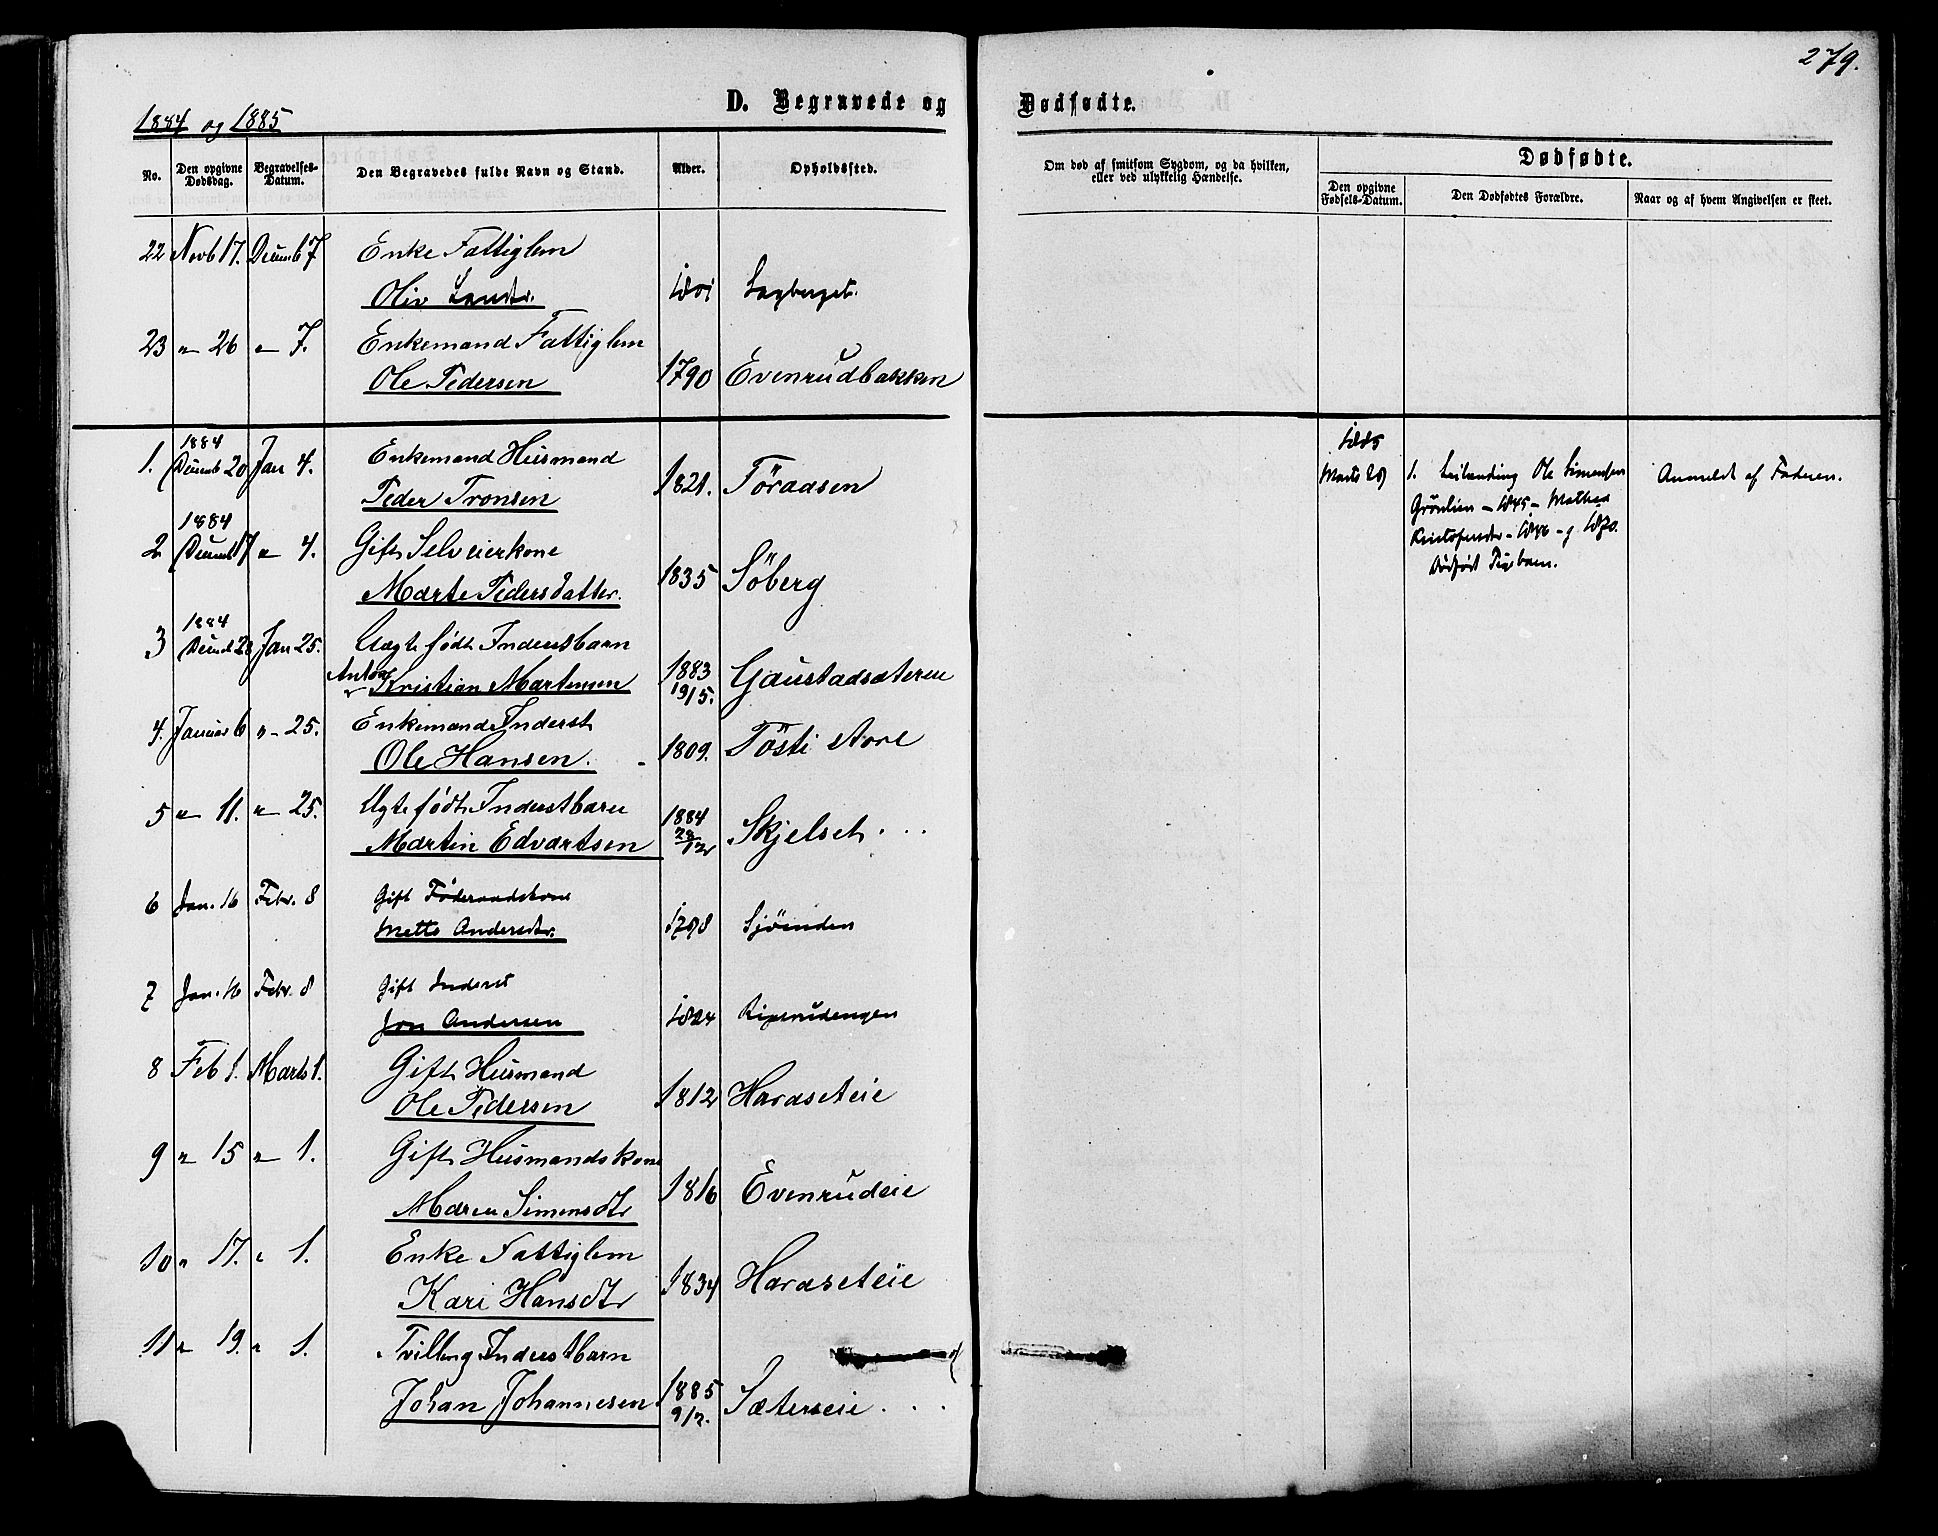 279.
1884 og 1885
D. Begravede og Dødfødte.
No. Den opgivne Dødsdag. Begravelses-Datum. Den Begravedes fulde Navn og Stand. Alder. Opholdssted.
Om død af smitsom Sygdom, og da hvilken, eller ved ulykkelig Hændelse.
Dødfødte.
Den opgivne Fødsels-Datum. Den Dødfødtes Forældre. Naar og af hvem Angivelsen er skeet.
22 Novb 17. Decemb 7 Enke Fattiglem
Oliv 1801
23 " 26 " 7. Enkemand Fattiglem
Ole Pedersen 1790 Evenrudbakken
1. 1884 Decemb 20 Jan 4. Enkemand Husmand
Peder Tronsen 1821. Töraasen
2 1884 Decemb 17 " 4. Gift Selveierkone
Marte Pedersdatter. 1835 Söberg
3 1884 Decemb 28 Jan 25. Uægte født Inderstbarn
Anton Kristian Martensen 1883 19/5. Gaustadsæteren
4. Januar 6 " 25. Enkemand Inderst
Ole Hansen. 1809. Tösti
5 " 11. " 25. Ægte født Inderstbarn
Martin Edvartsen 1884 28/12 Skjelset
6 Jan. 16 Febr. 8 Gift Föderaadskone
Mette Andersdtr. 1798 Sjöenden
7 Jan. 16 Febr. 8 Gift Inderst
Jon Andersen 1824 Ripsrudengen
8 Feb 1. Marts 1. Gift Husmand
Ole Pedersen 1812 Haraseteie
9 " 15 " 1. Gift Husmandskone
Maren Simensdtr 1816 Evenrudeie
10 " 17. " 1. Enke Fattiglem
Kari Hansdtr 1834 Haraseteie
11 " 19. " 1. Tvilling Inderstbarn
Johan Johannesen 1885 9/2. Sæterseie
1885
Marts 28 1. Leilending Ole Simensen
Grönlien - 1845 - Mathea
Kristofersdtr - 1846 - g 1870.
Dödfödt Pigebarn.
Anmeldt af Faderen.